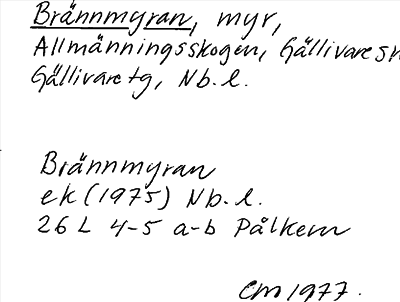 Brännmyran, myr,
Allmänningsskogen, Gällivare sn
Gällivare tg, Nb. l.
Brännmyran
ek (1975) Nb. l.
26 L 4-5 a-b Pålkem
CM 1977.